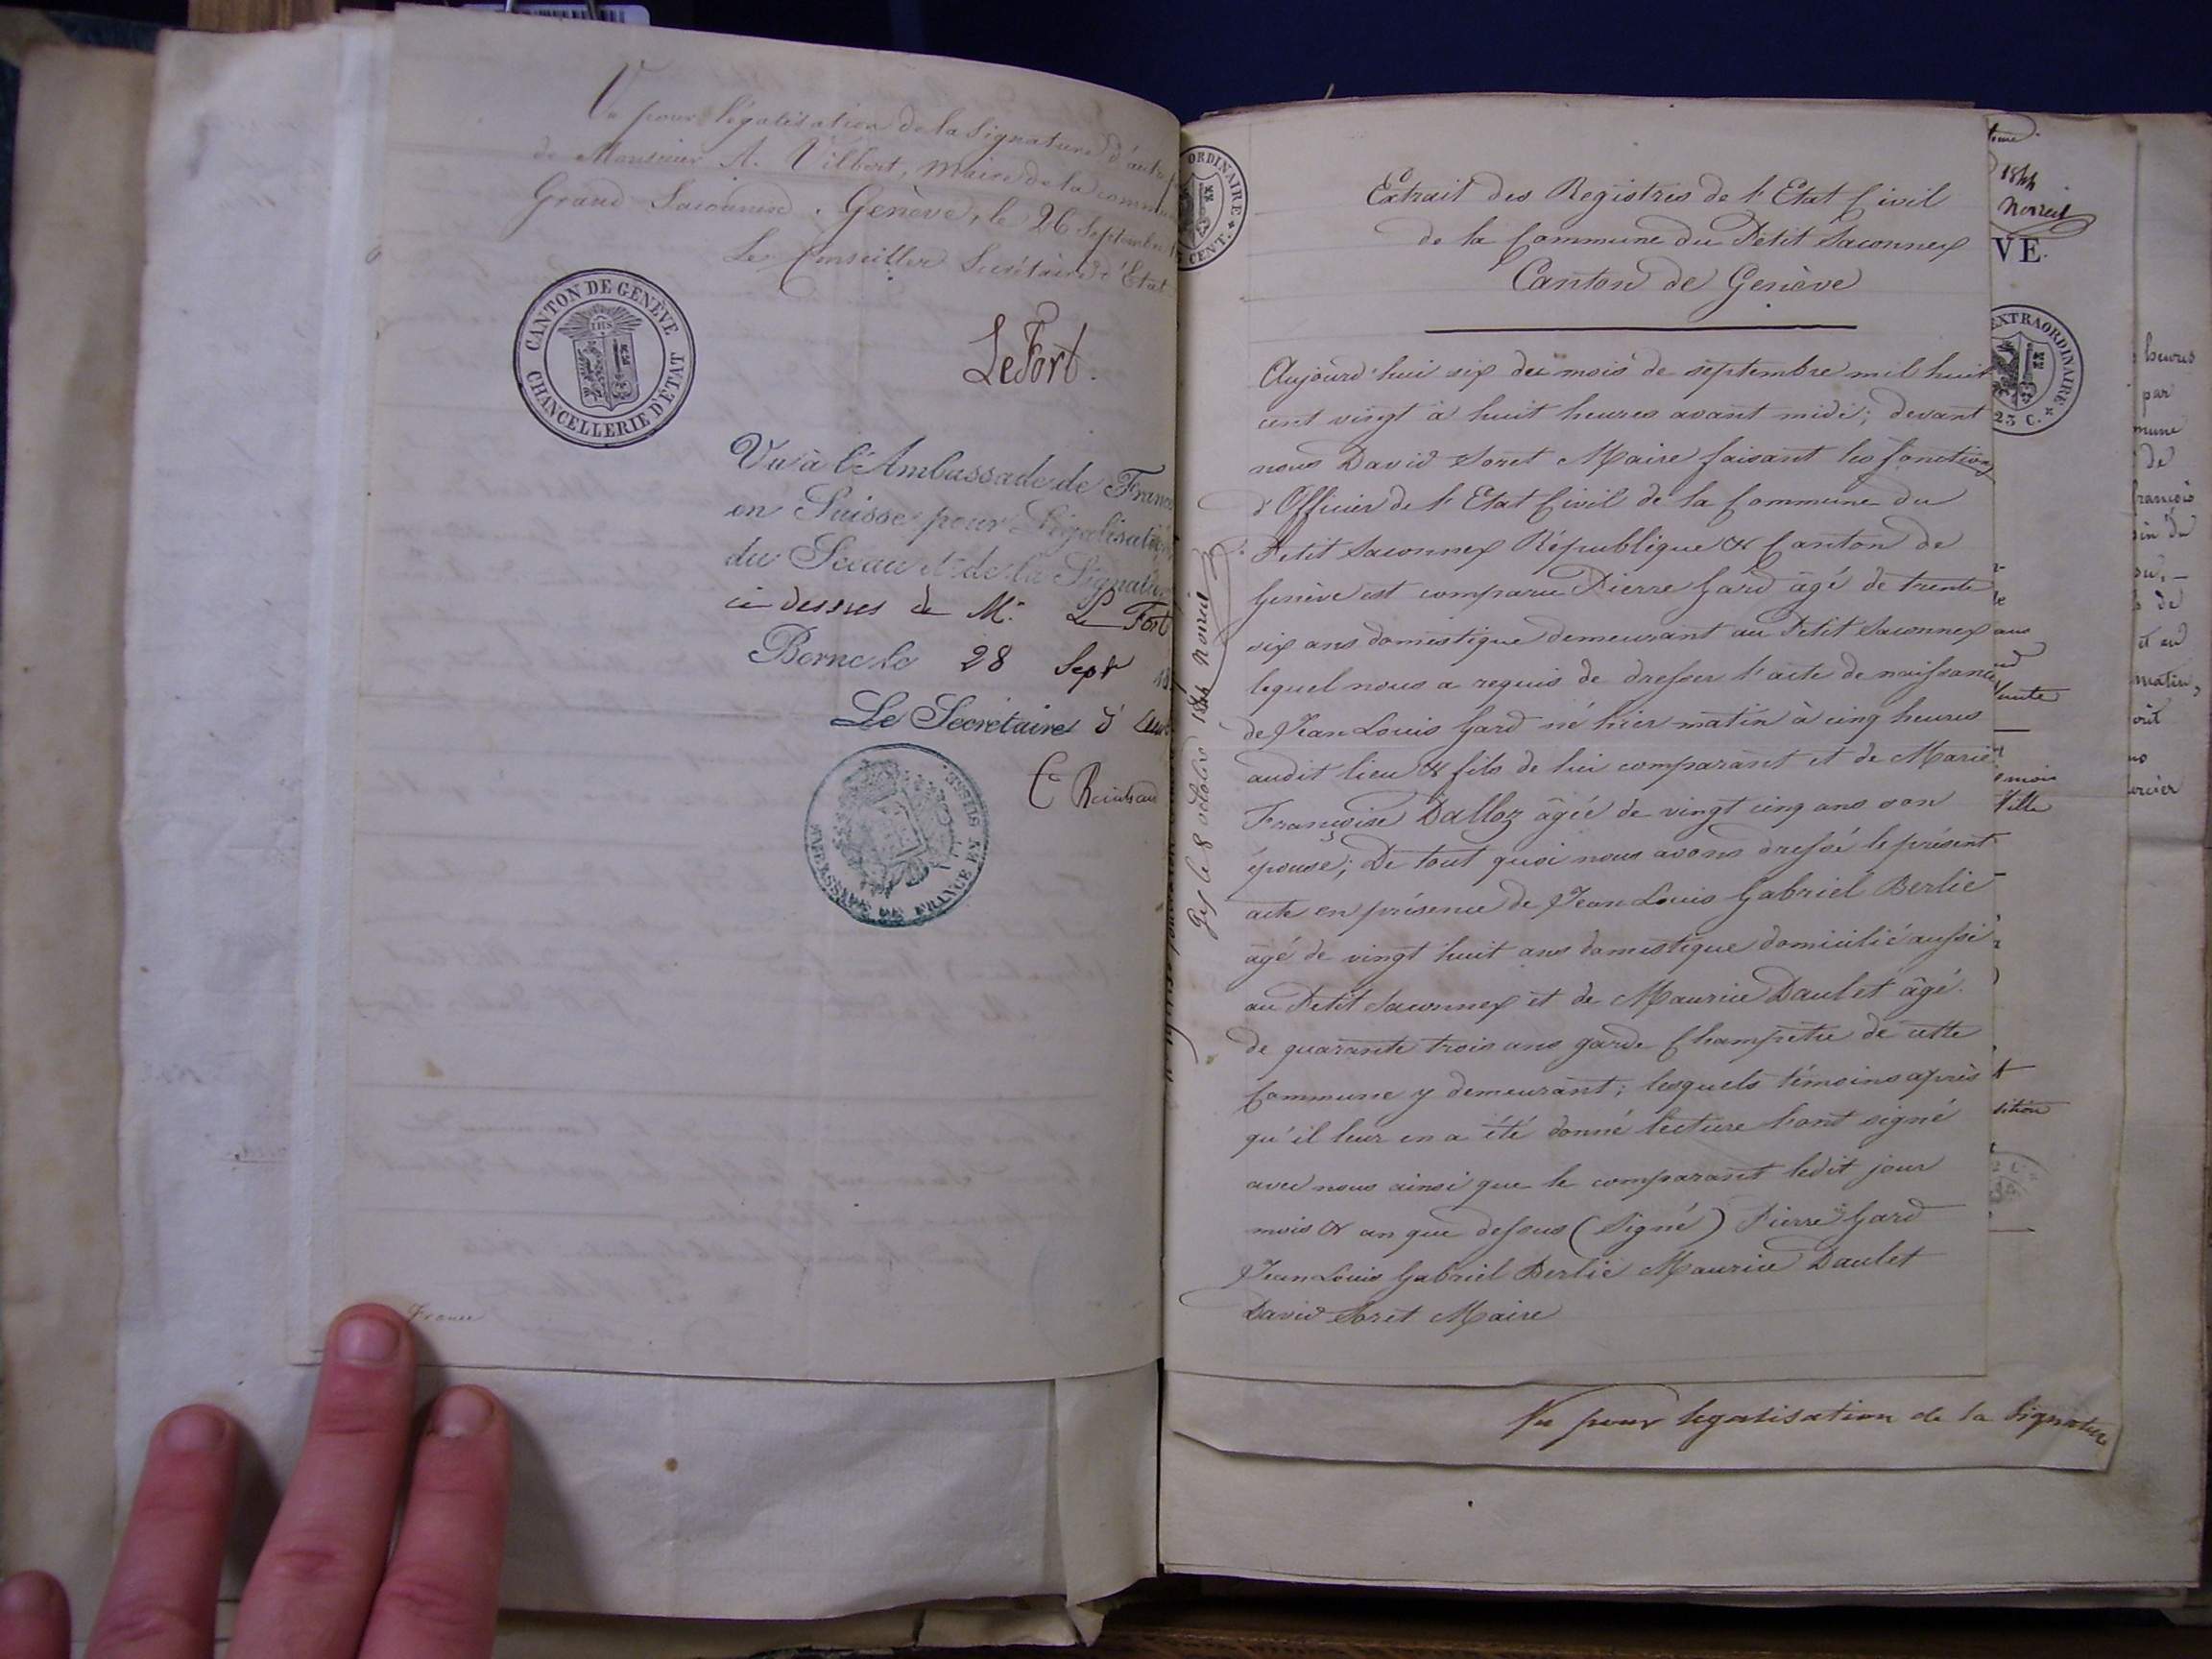 Vu pour légalisation de la Signature d'autre
de Monsieur A. Vilbert, Maire de la commune
Grand Saconnex. Genève, le 26 Septembre
Le Conseiller Secrétaire d'Etat
CANTON DE GENÈVE
CHANCELLERIE D'ETAT
IHS
LeFort.
Vu à l'Ambassade de France
en Suisse pour Légalisation
du Sceau et de la Signature
ci dessus de Mr. Le Fort
Berne le 28 Sept 18
Le Secrétaire d'
AMBASSADE DE FRANCE EN SUISSE
France
ORDINAIRE
CENT.
Extrait des Registres de l'Etat Civil
de la Commune du Petit Saconnex
Canton de Genève
Aujourd'hui six du mois de septembre mil huit
cent vingt à huit heures avant midi; devant
nous David Soret Maire faisant les fonctions
d'Officier de l'Etat Civil de la Commune du
Petit Saconnex République & Canton de
Genève est comparu Pierre Gard âgé de trente
six ans domestique demeurant au Petit Saconnex
lequel nous a requis de dresser l'acte de naissance
de Jean Louis Gard né hier matin à cinq heures
audit lieu & fils de lui comparant et de Marie
Françoise Dalloz âgée de vingt cinq ans son
épouse; De tout quoi nous avons dressé le présent
acte en présence de Jean Louis Gabriel Berlie
âgé de vingt huit ans domestique domicilié aussi
au Petit Saconnex et de Maurice Daulet âgé
de quarante trois ans garde Champêtre de cette
Commune y demeurant; lesquels témoins après
qu'il leur en a été donné lecture l'ont signé
avec nous ainsi que le comparant ledit jour
mois & an que dessus (Signé) Pierre Gard
Jean Louis Gabriel Berlie Maurice Daulet
David Soret Maire
Gex le 8 octobre 1844 Noirel
Vu pour légalisation de la Signature
1844
Noirel
VE.
EXTRAORDINAIRE
25 C.
ans
Ville
heures
par
mune
de
françois
de
et au
matin,